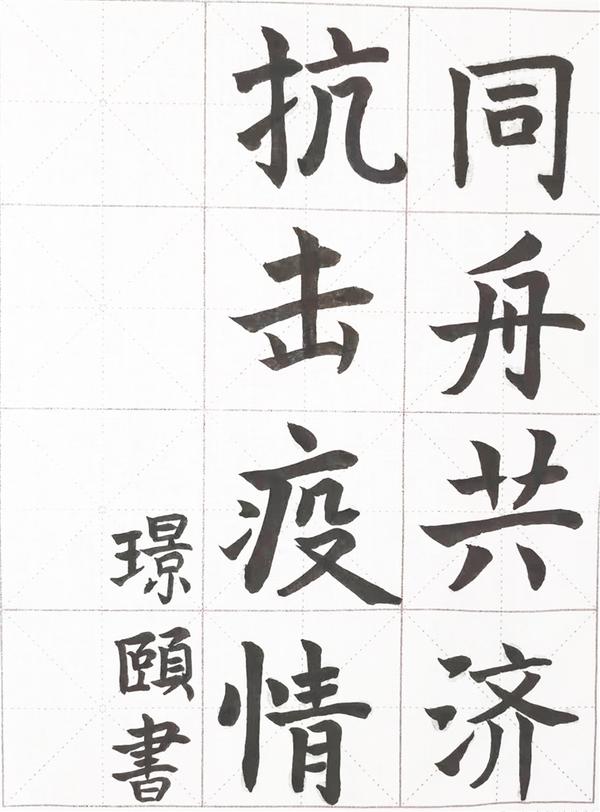 同舟共济
抗击疫情
璟颐書